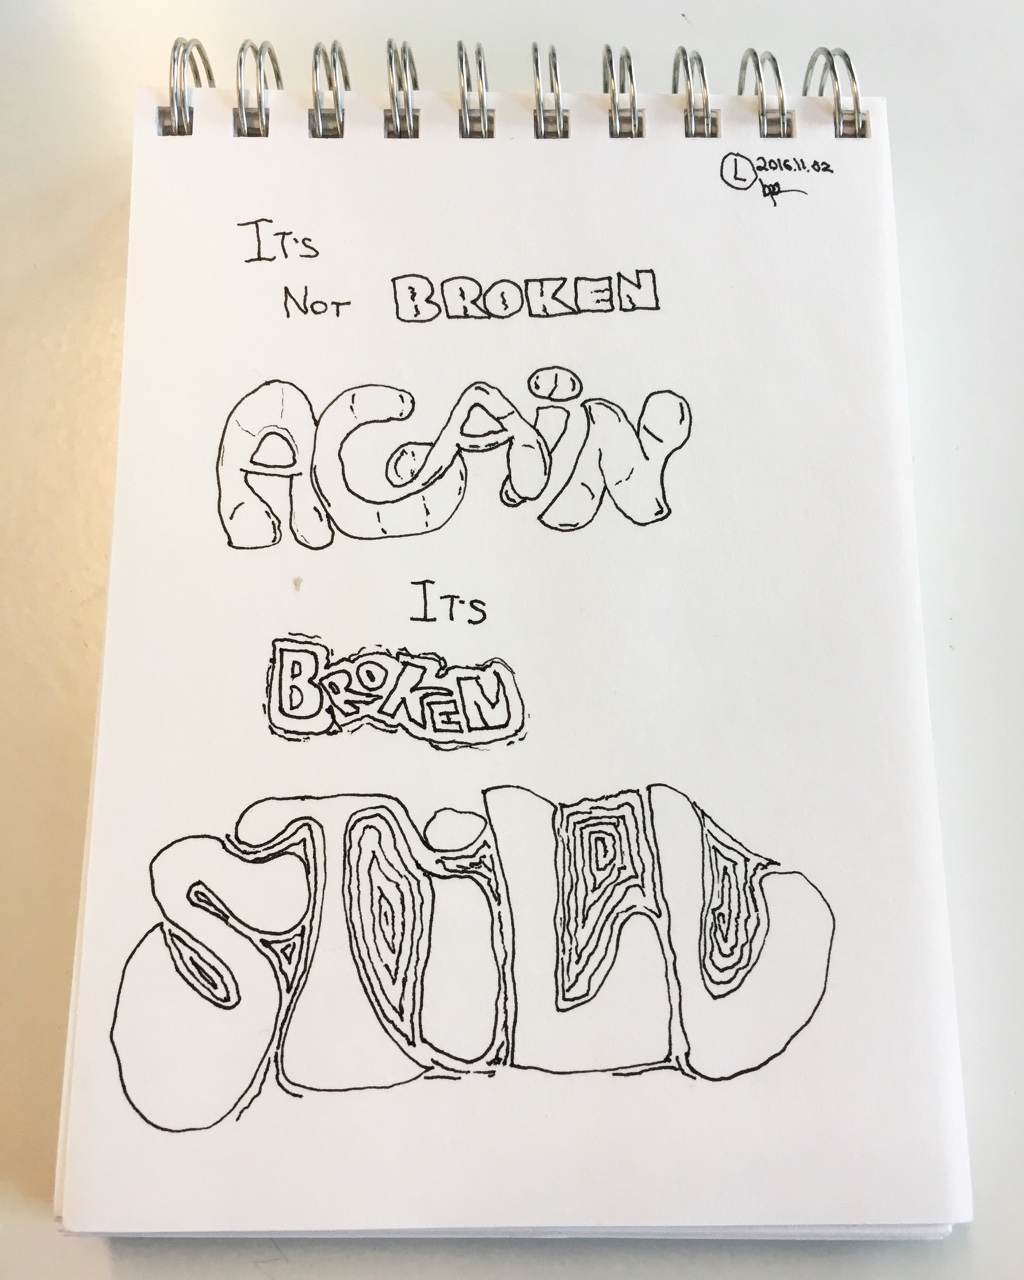 Ⓛ 2016.11.02
IT'S
NOT BROKEN
AGAiN
IT'S
BROKEN
STiLL